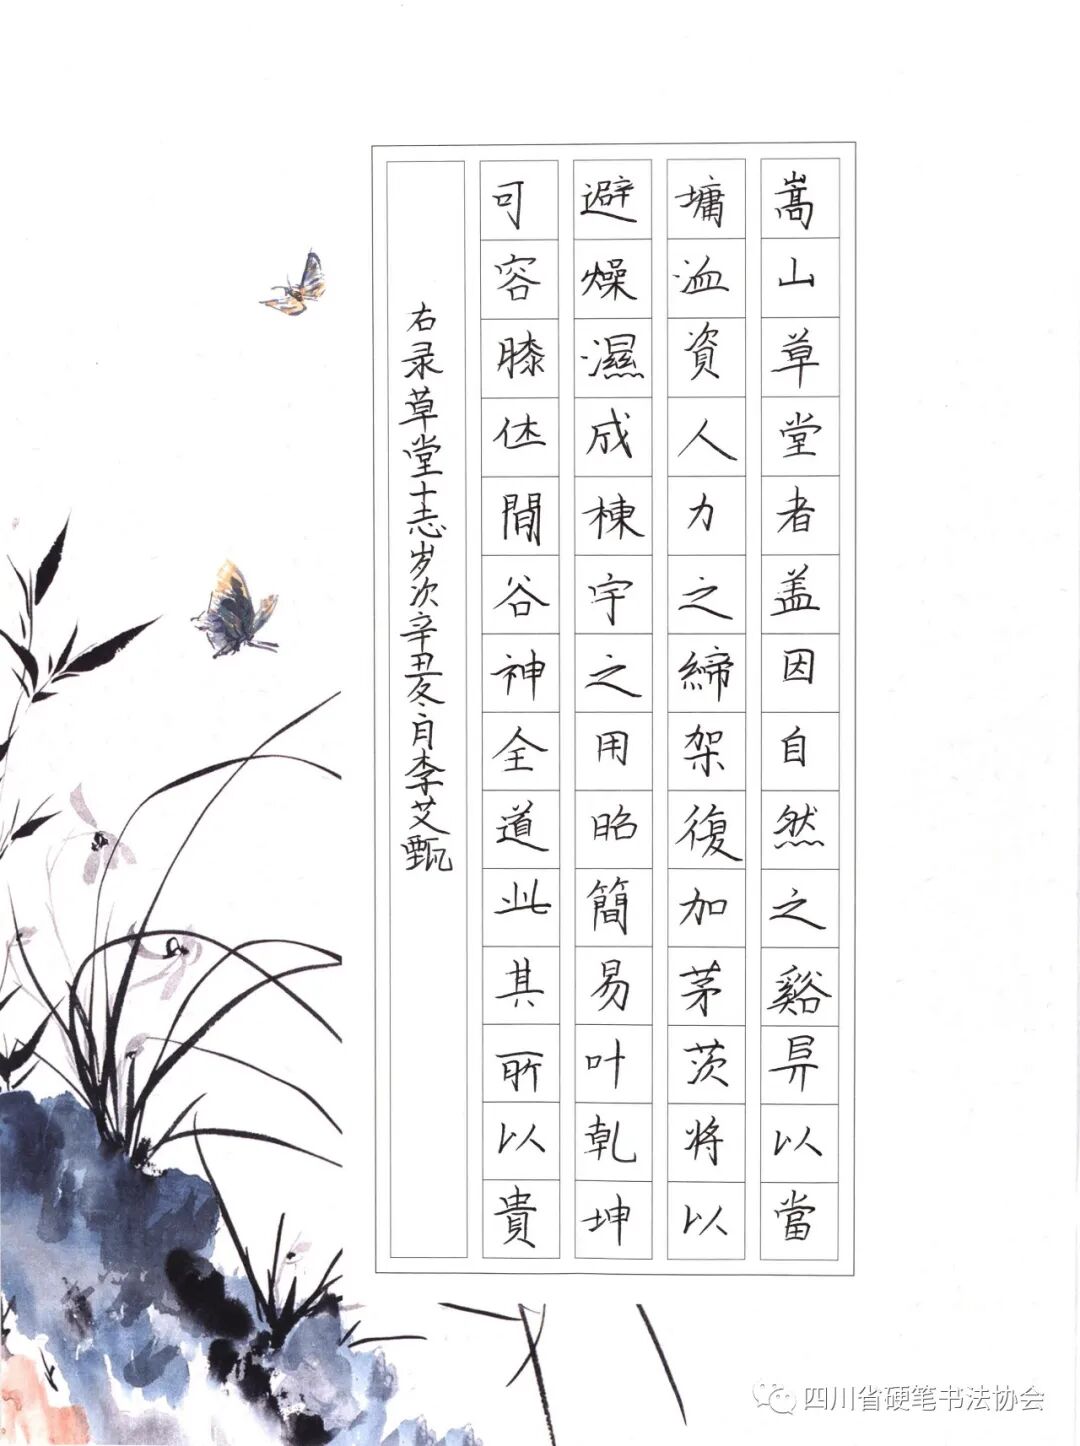 嵩山草堂者盖因自然之谿异以當
墉洫資人力之締架復加茅茨将以
避燥濕成棟宇之用昭簡易叶乾坤
可容膝休間谷神全道此其所以貴
右录草堂十志岁次辛丑冬月李艾甄
四川省硬笔书法协会